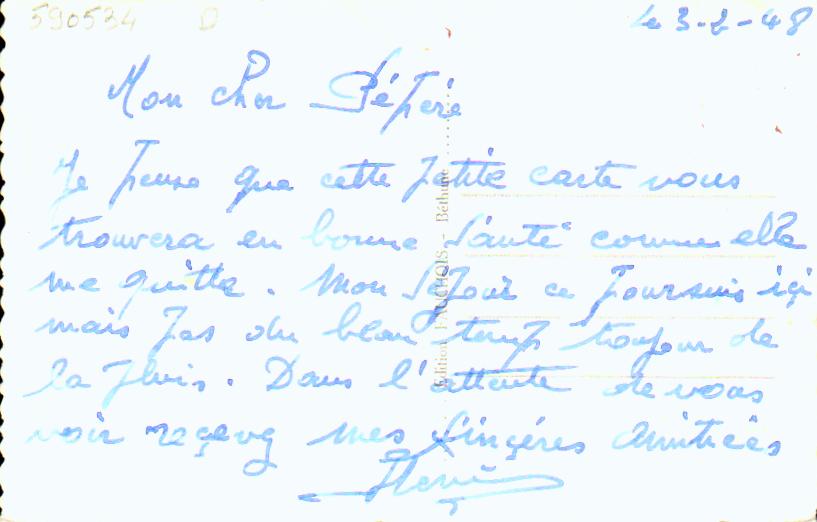 590534 D
le 3-2-48
Mon cher Pépère
Je pense que cette petite carte vous
trouvera en bonne santé comme elle
me quitte. Mon séjour ce poursuis içi
mais pas du beau temp toujour de
la pluis. Dans l'attente de vous
voir reçevez mes sinçéres amitiées
Edition FAUCHOIS - Béthune